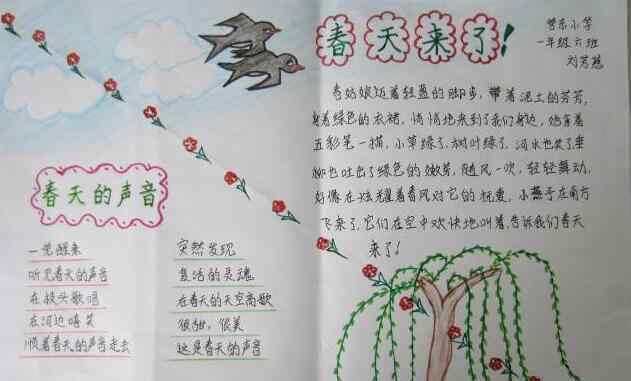 春天来了!
管东小学
一年级六班
刘芳慈
春姑娘迈着轻盈的脚步,带着泥土的芬芳,
身着绿色的衣裙,悄悄地来到了我们身边,她拿着
五彩笔一描,小草绿了,树叶绿了,河水也笑了垂
柳也吐出了绿色的嫩芽,随风一吹,轻轻舞动,
好像在炫耀着春风对它的抚爱,小燕子在南方
飞来了,它们在空中欢快地叫着,告诉我们春天
来了!
春天的声音
一觉醒来
听见春天的声音
在枝头歌唱
在河边嘻笑
顺着春天的声音走去
突然发现
复活的灵魂
在春天的天空高歌
很甜,很美
这是春天的声音